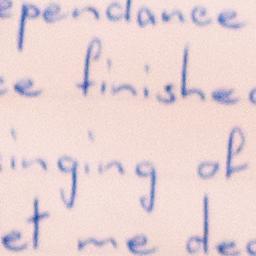 ependance
ce finished
inging of
et me dec